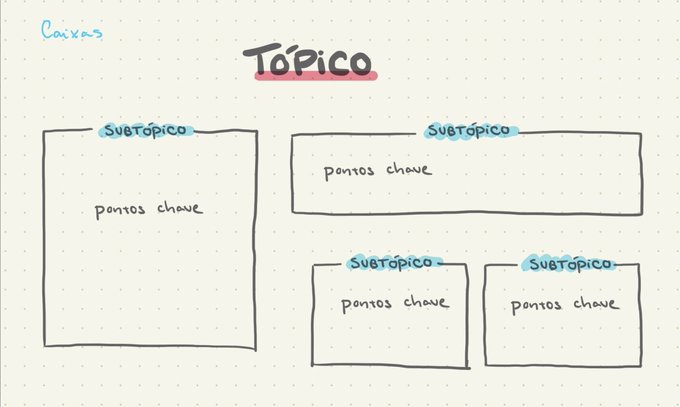 Caixas
TÓPiCO
SUBTÓPiCO
pontos chave
SUBTÓPiCO
pontos chave
SUBTÓPiCO
pontos chave
SUBTÓPiCO
pontos chave